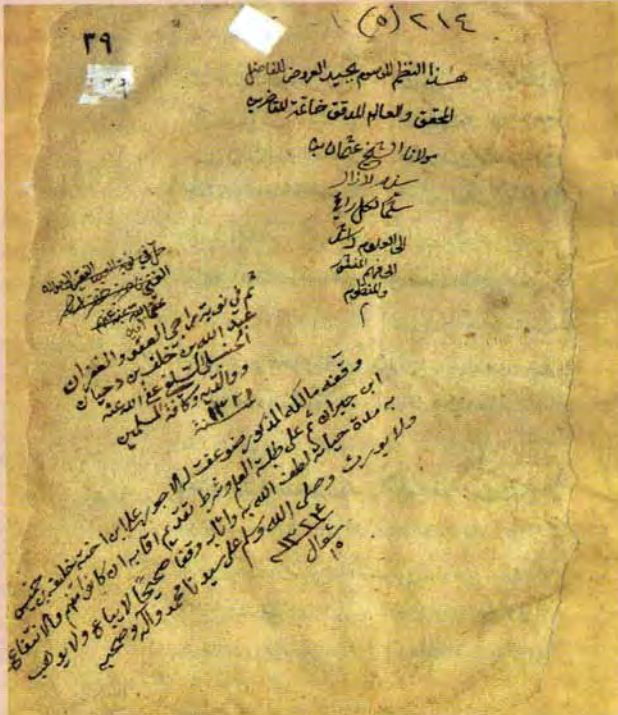 ٢١٤ (٥) ١
٣٩
هذا النظم الموسوم بجيد العروض للفاضل
المحقق والعالم المدقق خاتمة المتأخرين
مولانا الشيخ عثمان بن
سند لازال
سلما لكل راق
الى العلوم
الى فهم المنثور
والمنظوم
م
الفقير
عفى الله عنه
ثم في نوبة راجي العفو والغفران
عبد الله بن خلف بن دحيان
الحنبلي عفى الله عنه
ووالديه وكافة المسلمين
سنة
وقفه مالكه المذكور ضوعفت له الاجور على ابن اخته خليفة بن خميس
ابن جبران ثم على طلبة العلم وشرط تقديم اقاربه ان كان منهم والانتفاع
به مدة حياته لطف الله به واثابه وقفا صحيحا لايباع ولا يوهب
ولا يورث وصلى الله وسلم على سيدنا محمد وآله وصحبه
١٥ شوال